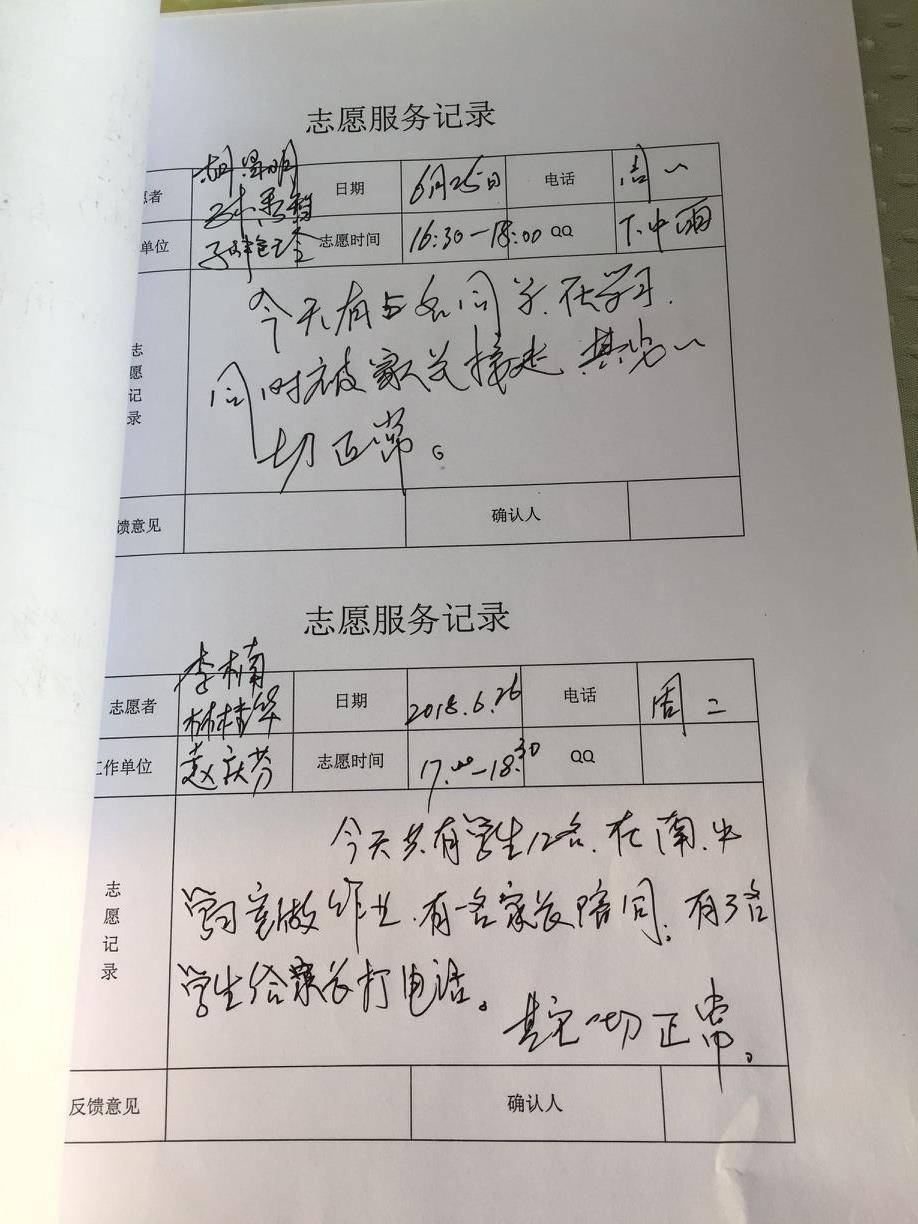 志愿服务记录
愿者 胡 明 日期 6月25日 电话 周一
单位 志愿时间 16:30—18:00 QQ 下中雨
今天有5名同学.在学习.
志愿记录
同时被家长接走 其它一
切正常。
馈意见 确认人
志愿服务记录
李楠
志愿者 林桂华 日期 2018.6.26 电话 周二
工作单位 赵庆芬 志愿时间 17.00—18:30 QQ
今天共有学生12名.在南.
志愿记录
学习室做作业.有一名家长陪同;有3名
学生给家长打电话。
其它一切正常。
反馈意见 确认人